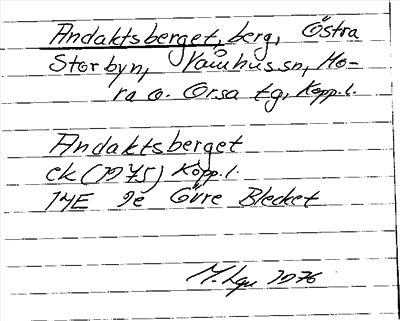 Andaktsberget, berg, Östra
Storbyn, Våmhussn, Mo-
ra o. Orsa tg, Kopp.l.
Andaktsberget
ek (1975) Kopp.l.
14E 9e Övre Blecket
M. 1976